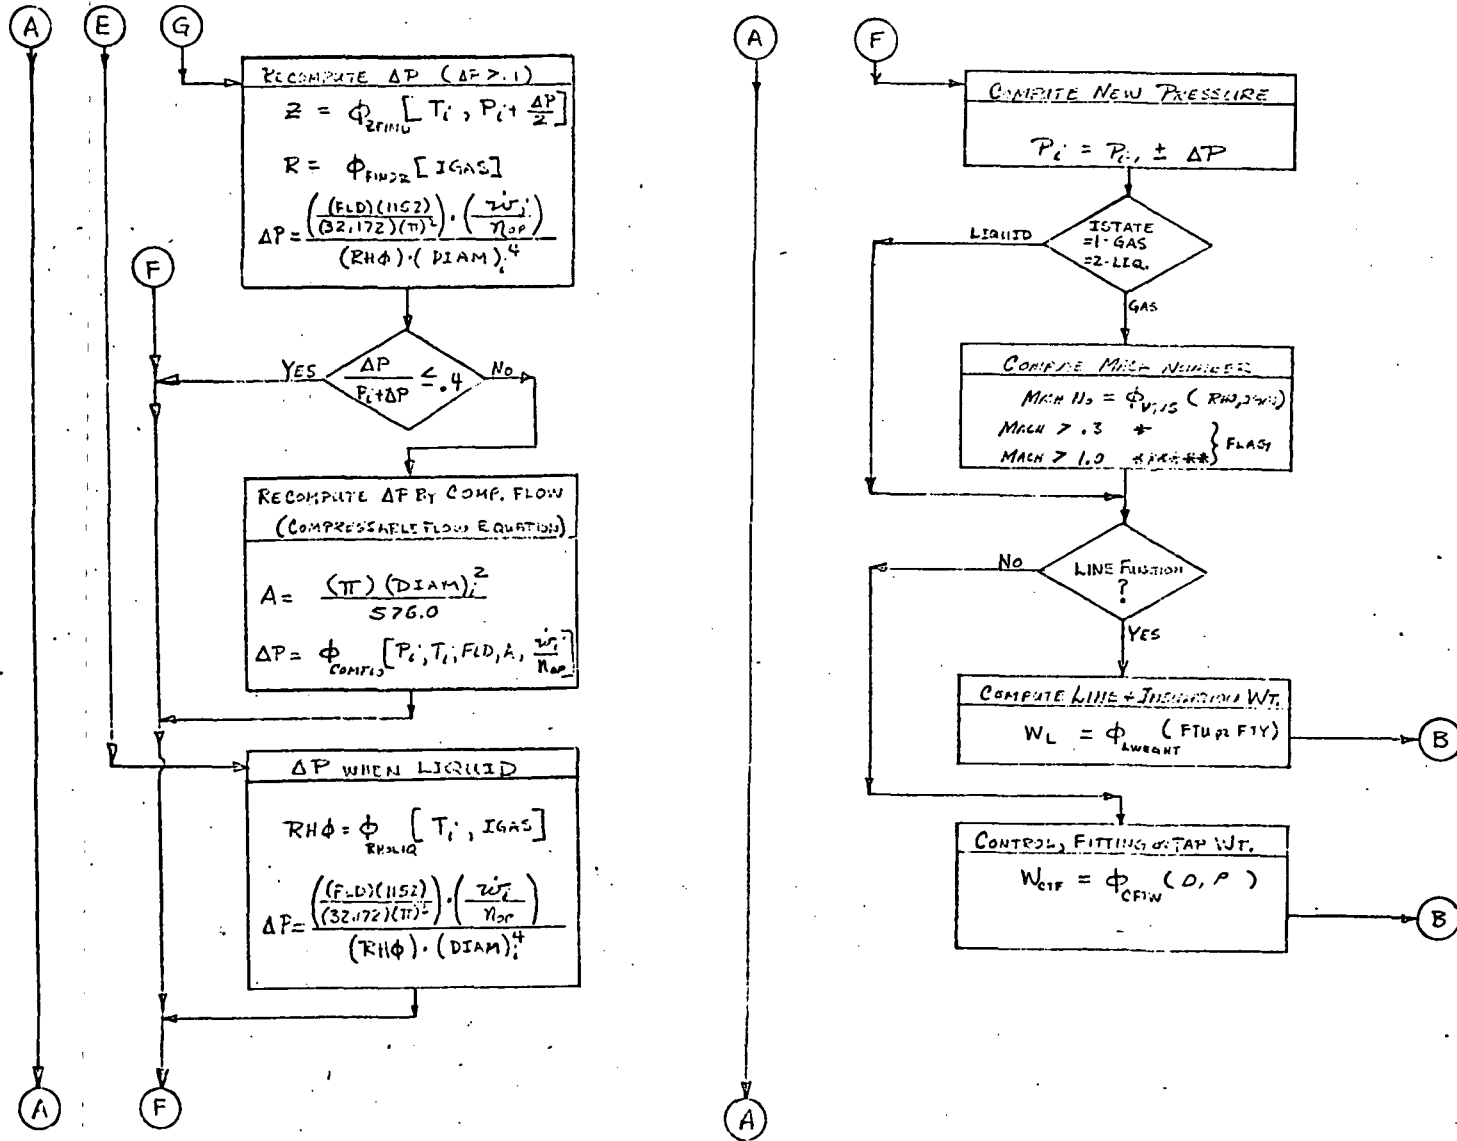 A
E
G
RECOMPUTE ΔP (ΔP > .1)
Z = ϕ ZFIND [ Ti , Pi + ΔP/2 ]
R = ϕ [ IGAS ]
ΔP = ((FLD)(1152)/(32.172)(π)²) · (ẇi/ηop) / (RHϕ) · (DIAM)i⁴
F
YES
ΔP/Pi+ΔP ≤ .4
NO
RECOMPUTE ΔP BY COMP. FLOW
(COMPRESSABLE FLOW EQUATION)
A = (π) (DIAM)i² / 576.0
ΔP = ϕ COMFLO [ Pi, Ti, FLD, A, ẇi/ηop ]
ΔP WHEN LIQUID
RHϕ = ϕ RHOLIQ [ Ti , IGAS ]
ΔP = ((FLD)(1152)/(32.172)(π)²) · (ẇi/ηop) / (RHϕ) · (DIAM)i⁴
A
F
A
F
COMPUTE NEW PRESSURE
Pi = Pi, ± ΔP
LIQUID
ISTATE
=1-GAS
=2-LIQ.
GAS
COMPUTE MACH NUMBER
MACH NO = ϕ
MACH > .3 *
MACH > 1.0 ****** } FLAG
NO
LINE FUNCTION
?
YES
COMPUTE LINE + INSULATION WT.
WL = ϕ LWEGHT ( FTU or FTY)
B
CONTROL, FITTING or TAP WT.
WCTF = ϕ CFTW ( D, P )
B
A